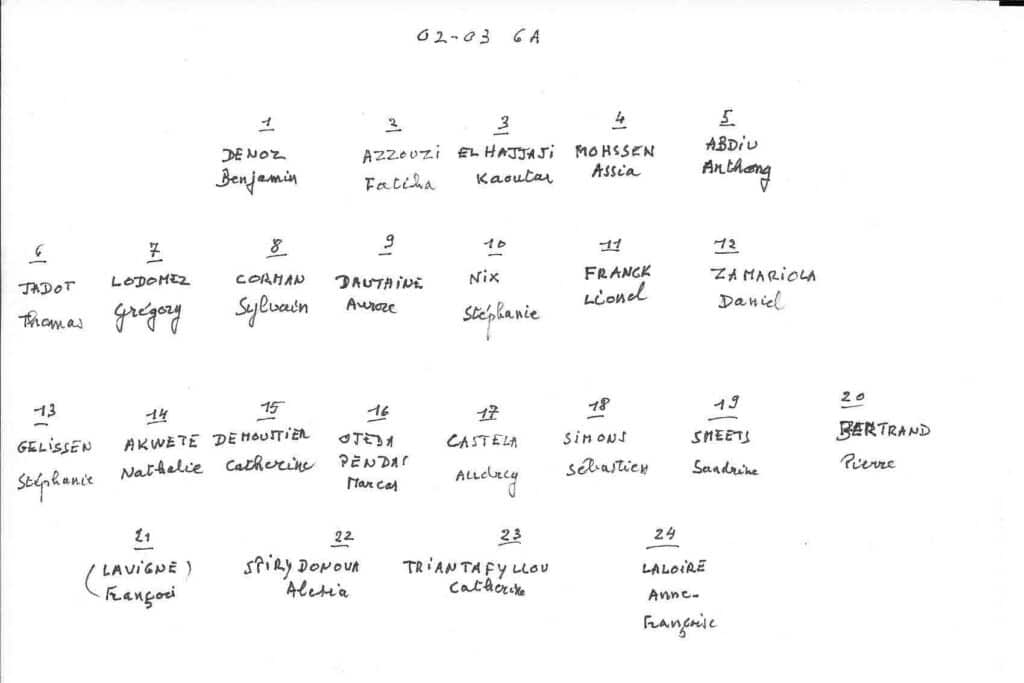 02-03 6A
1 2 3 4 5
DENOZ AZZOUZI EL HAJJAJI MOHSSEN ABDIU
Benjamin Fatiha Kaoutar Assia Anthony
6 7 8 9 10 11 12
JADOT LODOMEZ CORMAN DAUTHINE NIX FRANCK ZAMARIOLA
Thomas Grégory Sylvain Aurore Stéphanie Lionel Daniel
13 14 15 16 17 18 19 20
GELISSEN AKWETE DEMOUSTIER OJEDA CASTELA SIMONS SMEETS BERTRAND
Stéphanie Nathalie Catherine PENDAS Audrey Sébastien Sandrine Pierre
Marcos
21 22 23 24
(LAVIGNE) SPIRYDONOVA TRIANTAFYLLOU LALOIRE
François Alesia Catherine Anne-
Françoise